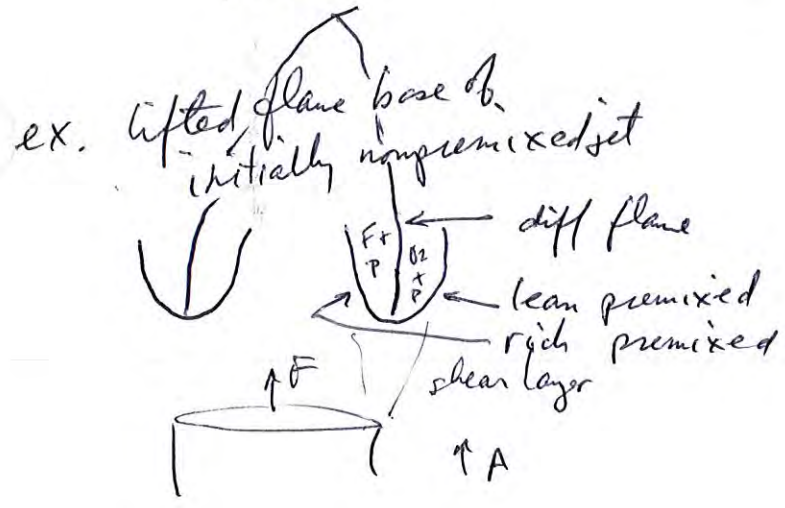 ex. lifted flame base of
initially nonpremixed jet
diff flame
F+
P
O2
+
P
lean premixed
rich premixed
shear layer
↑ F
↑ A